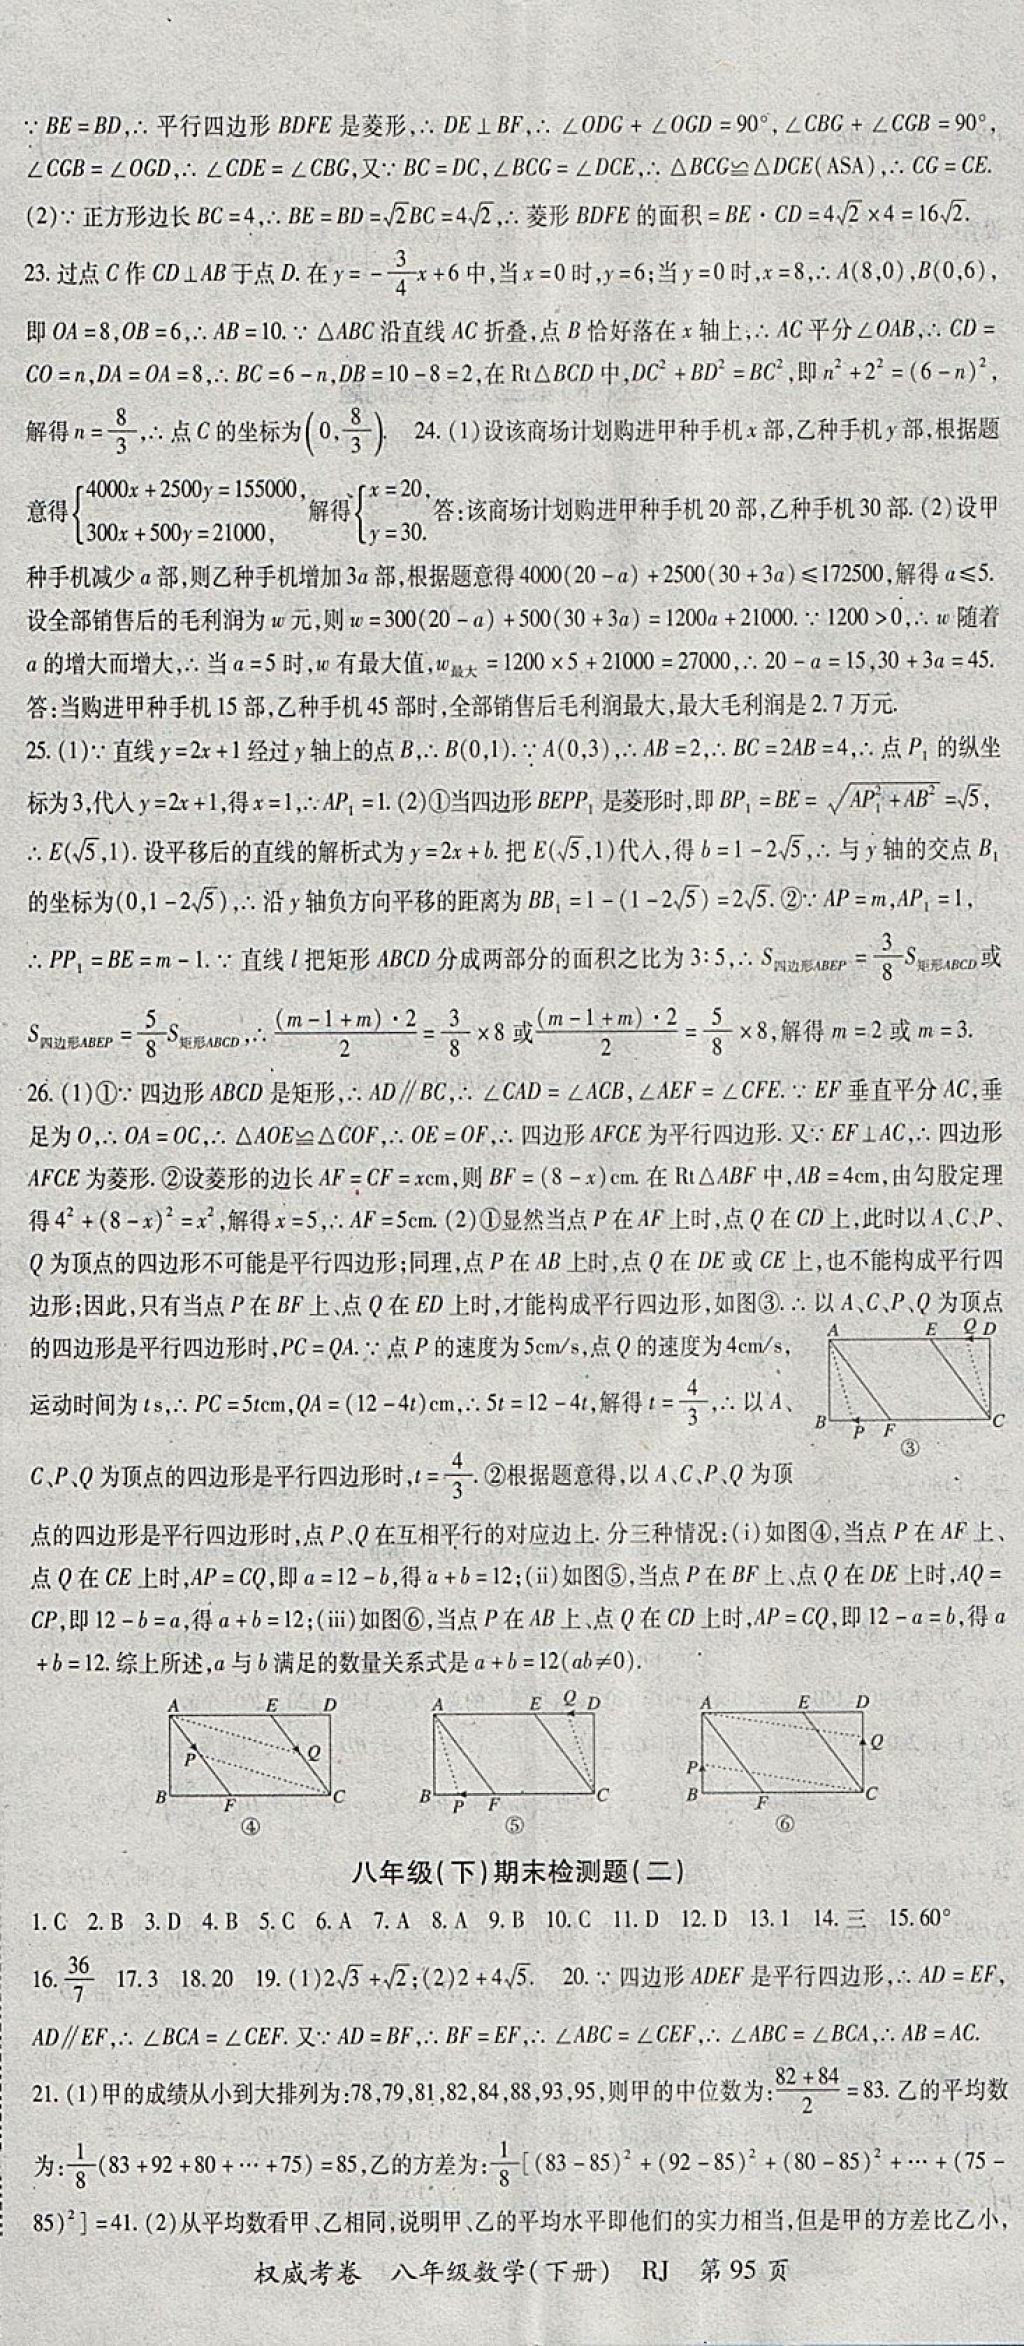 ∵BE=BD,∴平行四边形BDFE是菱形,∴DE⊥BF,∴∠ODG+∠OGD=90°,∠CBG+∠CGB=90°,
∠CGB=∠OGD,∴∠CDE=∠CBG,又∵BC=DC,∠BCG=∠DCE,∴△BCG≌△DCE(ASA),∴CG=CE.
(2)∵正方形边长BC=4,∴BE=BD=√2BC=4√2,∴菱形BDFE的面积=BE·CD=4√2×4=16√2.
23.过点C作CD⊥AB于点D.在y=-3/4x+6中,当x=0时,y=6;当y=0时,x=8,∴A(8,0),B(0,6),
即OA=8,OB=6,∴AB=10.∵△ABC沿直线AC折叠,点B恰好落在x轴上,∴AC平分∠OAB,∴CD=
CO=n,DA=OA=8,∴BC=6-n,DB=10-8=2,在Rt△BCD中,DC²+BD²=BC²,即n²+2²=(6-n)²,
解得n=8/3,∴点C的坐标为(0,8/3). 24.(1)设该商场计划购进甲种手机x部,乙种手机y部,根据题
意得{4000x+2500y=155000, 300x+500y=21000, 解得{x=20, y=30. 答:该商场计划购进甲种手机20部,乙种手机30部.(2)设甲
种手机减少a部,则乙种手机增加3a部,根据题意得4000(20-a)+2500(30+3a)≤172500,解得a≤5.
设全部销售后的毛利润为w元,则w=300(20-a)+500(30+3a)=1200a+21000.∵1200>0,∴w随着
a的增大而增大,∴当a=5时,w有最大值,w最大=1200×5+21000=27000,∴20-a=15,30+3a=45.
答:当购进甲种手机15部,乙种手机45部时,全部销售后毛利润最大,最大毛利润是2.7万元.
25.(1)∵直线y=2x+1经过y轴上的点B,∴B(0,1).∵A(0,3),∴AB=2,∴BC=2AB=4,∴点P₁的纵坐
标为3,代入y=2x+1,得x=1,∴AP₁=1.(2)①当四边形BEPP₁是菱形时,即BP₁=BE=√(AP₁²+AB²)=√5,
∴E(√5,1).设平移后的直线的解析式为y=2x+b.把E(√5,1)代入,得b=1-2√5,∴与y轴的交点B₁
的坐标为(0,1-2√5),∴沿y轴负方向平移的距离为BB₁=1-(1-2√5)=2√5.②∵AP=m,AP₁=1,
∴PP₁=BE=m-1.∵直线l把矩形ABCD分成两部分的面积之比为3:5,∴S四边形ABEP=3/8S矩形ABCD或
S四边形ABEP=5/8S矩形ABCD,∴(m-1+m)·2/2=3/8×8或(m-1+m)·2/2=5/8×8,解得m=2或m=3.
26.(1)①∵四边形ABCD是矩形,∴AD∥BC,∴∠CAD=∠ACB,∠AEF=∠CFE.∵EF垂直平分AC,垂
足为O,∴OA=OC,∴△AOE≌△COF,∴OE=OF,∴四边形AFCE为平行四边形.又∵EF⊥AC,∴四边形
AFCE为菱形.②设菱形的边长AF=CF=xcm,则BF=(8-x)cm.在Rt△ABF中,AB=4cm,由勾股定理
得4²+(8-x)²=x²,解得x=5,∴AF=5cm.(2)①显然当点P在AF上时,点Q在CD上,此时以A、C、P、
Q为顶点的四边形不可能是平行四边形;同理,点P在AB上时,点Q在DE或CE上,也不能构成平行四
边形;因此,只有当点P在BF上、点Q在ED上时,才能构成平行四边形,如图③.∴以A、C、P、Q为顶点
的四边形是平行四边形时,PC=QA.∵点P的速度为5cm/s,点Q的速度为4cm/s,
运动时间为ts,∴PC=5tcm,QA=(12-4t)cm,∴5t=12-4t,解得t=4/3,∴以A、
C、P、Q为顶点的四边形是平行四边形时,t=4/3.②根据题意得,以A、C、P、Q为顶
A E Q D
B P F C
③
点的四边形是平行四边形时,点P、Q在互相平行的对应边上.分三种情况:(i)如图④,当点P在AF上、
点Q在CE上时,AP=CQ,即a=12-b,得a+b=12;(ii)如图⑤,当点P在BF上、点Q在DE上时,AQ=
CP,即12-b=a,得a+b=12;(iii)如图⑥,当点P在AB上、点Q在CD上时,AP=CQ,即12-a=b,得a
+b=12.综上所述,a与b满足的数量关系式是a+b=12(ab≠0).
A E D A E Q D A E D
P Q P Q
B F C B P F C B F C
④ ⑤ ⑥
八年级(下)期末检测题(二)
1.C 2.B 3.D 4.B 5.C 6.A 7.A 8.A 9.B 10.C 11.D 12.D 13.1 14.三 15.60°
16.36/7 17.3 18.20 19.(1)2√3+√2;(2)2+4√5. 20.∵四边形ADEF是平行四边形,∴AD=EF,
AD∥EF,∴∠BCA=∠CEF.又∵AD=BF,∴BF=EF,∴∠ABC=∠CEF,∴∠ABC=∠BCA,∴AB=AC.
21.(1)甲的成绩从小到大排列为:78,79,81,82,84,88,93,95,则甲的中位数为:(82+84)/2=83.乙的平均数
为:1/8(83+92+80+…+75)=85,乙的方差为:1/8[(83-85)²+(92-85)²+(80-85)²+…+(75-
85)²]=41.(2)从平均数看甲、乙相同,说明甲、乙的平均水平即他们的实力相当,但是甲的方差比乙小,
权威考卷 八年级数学(下册) RJ 第95页